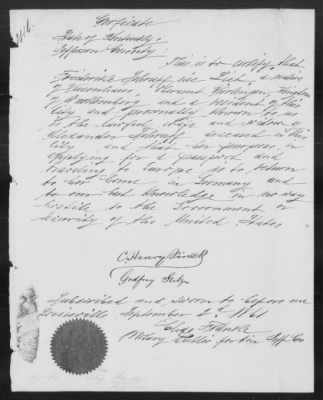 Certificate
State of Kentucky
Jefferson County
This is to certify, that
Friederike Schrupf née List, a native
of
of Wurttemberg and a resident of this
City and personally known to us
is the lawful wife and widow of
Alexander Schrupf deceased in this
City and that her purpose in
applying for a passport and
traveling to Europe is to return
to her home in Germany and
to our best knowledge in no way
hostile to the Government or
security of the United States.
C. Henry
Godfrey
Subscribed and sworn to before me
Louisville September 1861
Notary Public for in Jeff Co